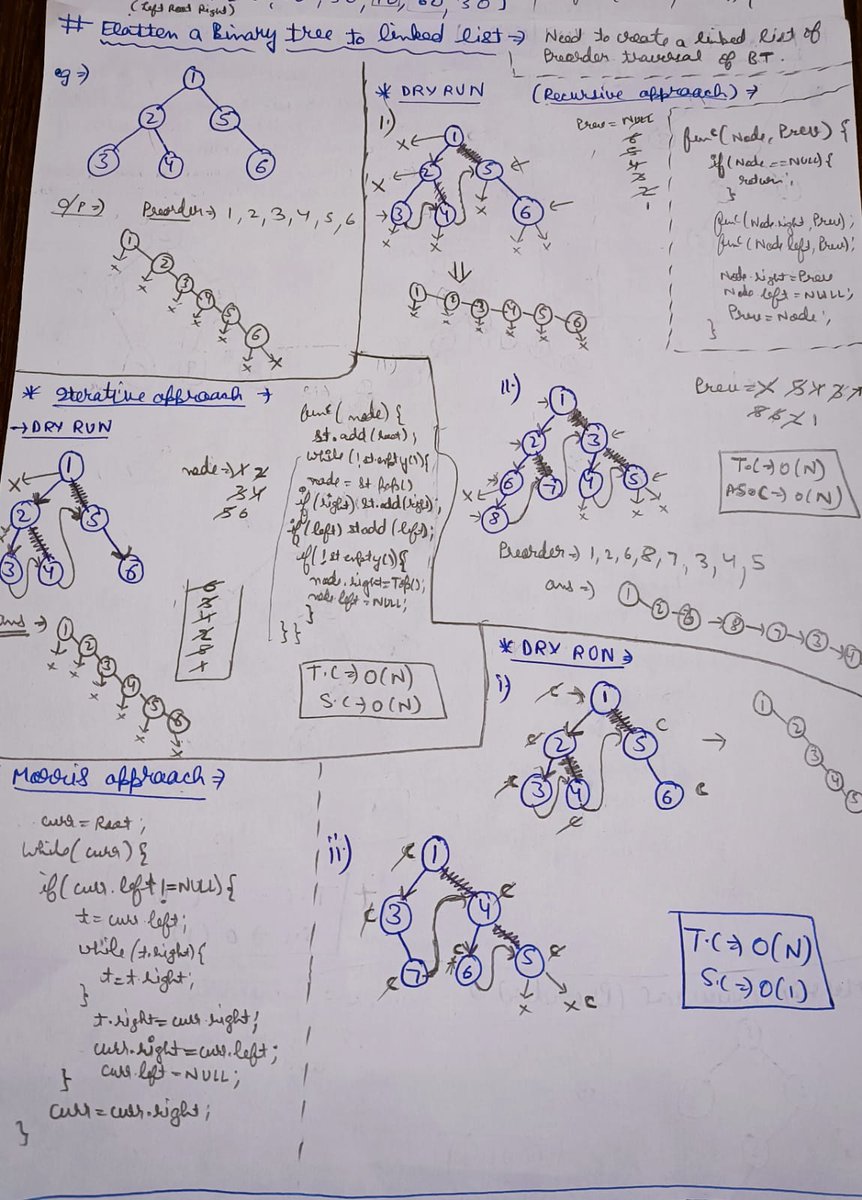 (Left Root Right)
# Flatten a Binary tree to linked list → Need to create a linked list of
Preorder traversal of BT.
eg ⇒
1
2 5
3 4 6
O/P ⇒ Preorder → 1, 2, 3, 4, 5, 6
1
x 2
x 3
x 4
x 5
x 6
x x
* DRY RUN (Recursive approach) ⇒
i.)
x 1
x 2 5
3 4 x 6
x x x x x
⇓
1 2 3 4 5 6
x x x x x x
Prev = NULL
6
5
4
3
2
1
func(Node, Prev) {
if(Node == NULL) {
return;
}
func(Node.right, Prev);
func(Node.left, Prev);
Node.right = Prev
Node.left = NULL;
Prev = Node;
}
ii.)
1
2 3
x 6 7 4 5 x
8 x x x
Prev = x 5 4 3 7
8 6 2 1
T.C → O(N)
A.S.C → O(N)
Preorder → 1, 2, 6, 8, 7, 3, 4, 5
ans ⇒ 1 2 6 → 8 → 7 → 3 → 4
* Iterative approach →
→ DRY RUN
node → 1 2
3 4
5 6
x 1
2 5
3 4 6
ans ⇒ 1
x 2
x 3
x 4
x 5
x 6
x x
6
3
4
2
5
1
func(node) {
st.add(root);
while(!st.empty()){
node = st.pop()
if(right) st.add(right);
if(left) st.add(left);
if(!st.empty()){
node.right = Top();
node.left = NULL;
}
}}
T.C → O(N)
S.C → O(N)
* DRY RUN ⇒
i) c → 1
c 2 5 c
c 3 4 6 c
c
→ 1 2 3 4 5
Morris approach ⇒
curr = Root;
while(curr) {
if(curr.left != NULL) {
t = curr.left;
while(t.right) {
t = t.right;
}
t.right = curr.right;
curr.right = curr.left;
curr.left = NULL;
}
curr = curr.right;
}
ii) c 1
c 3 4 c
c 7 c 6 5 c
x x c
T.C ⇒ O(N)
S.C ⇒ O(1)